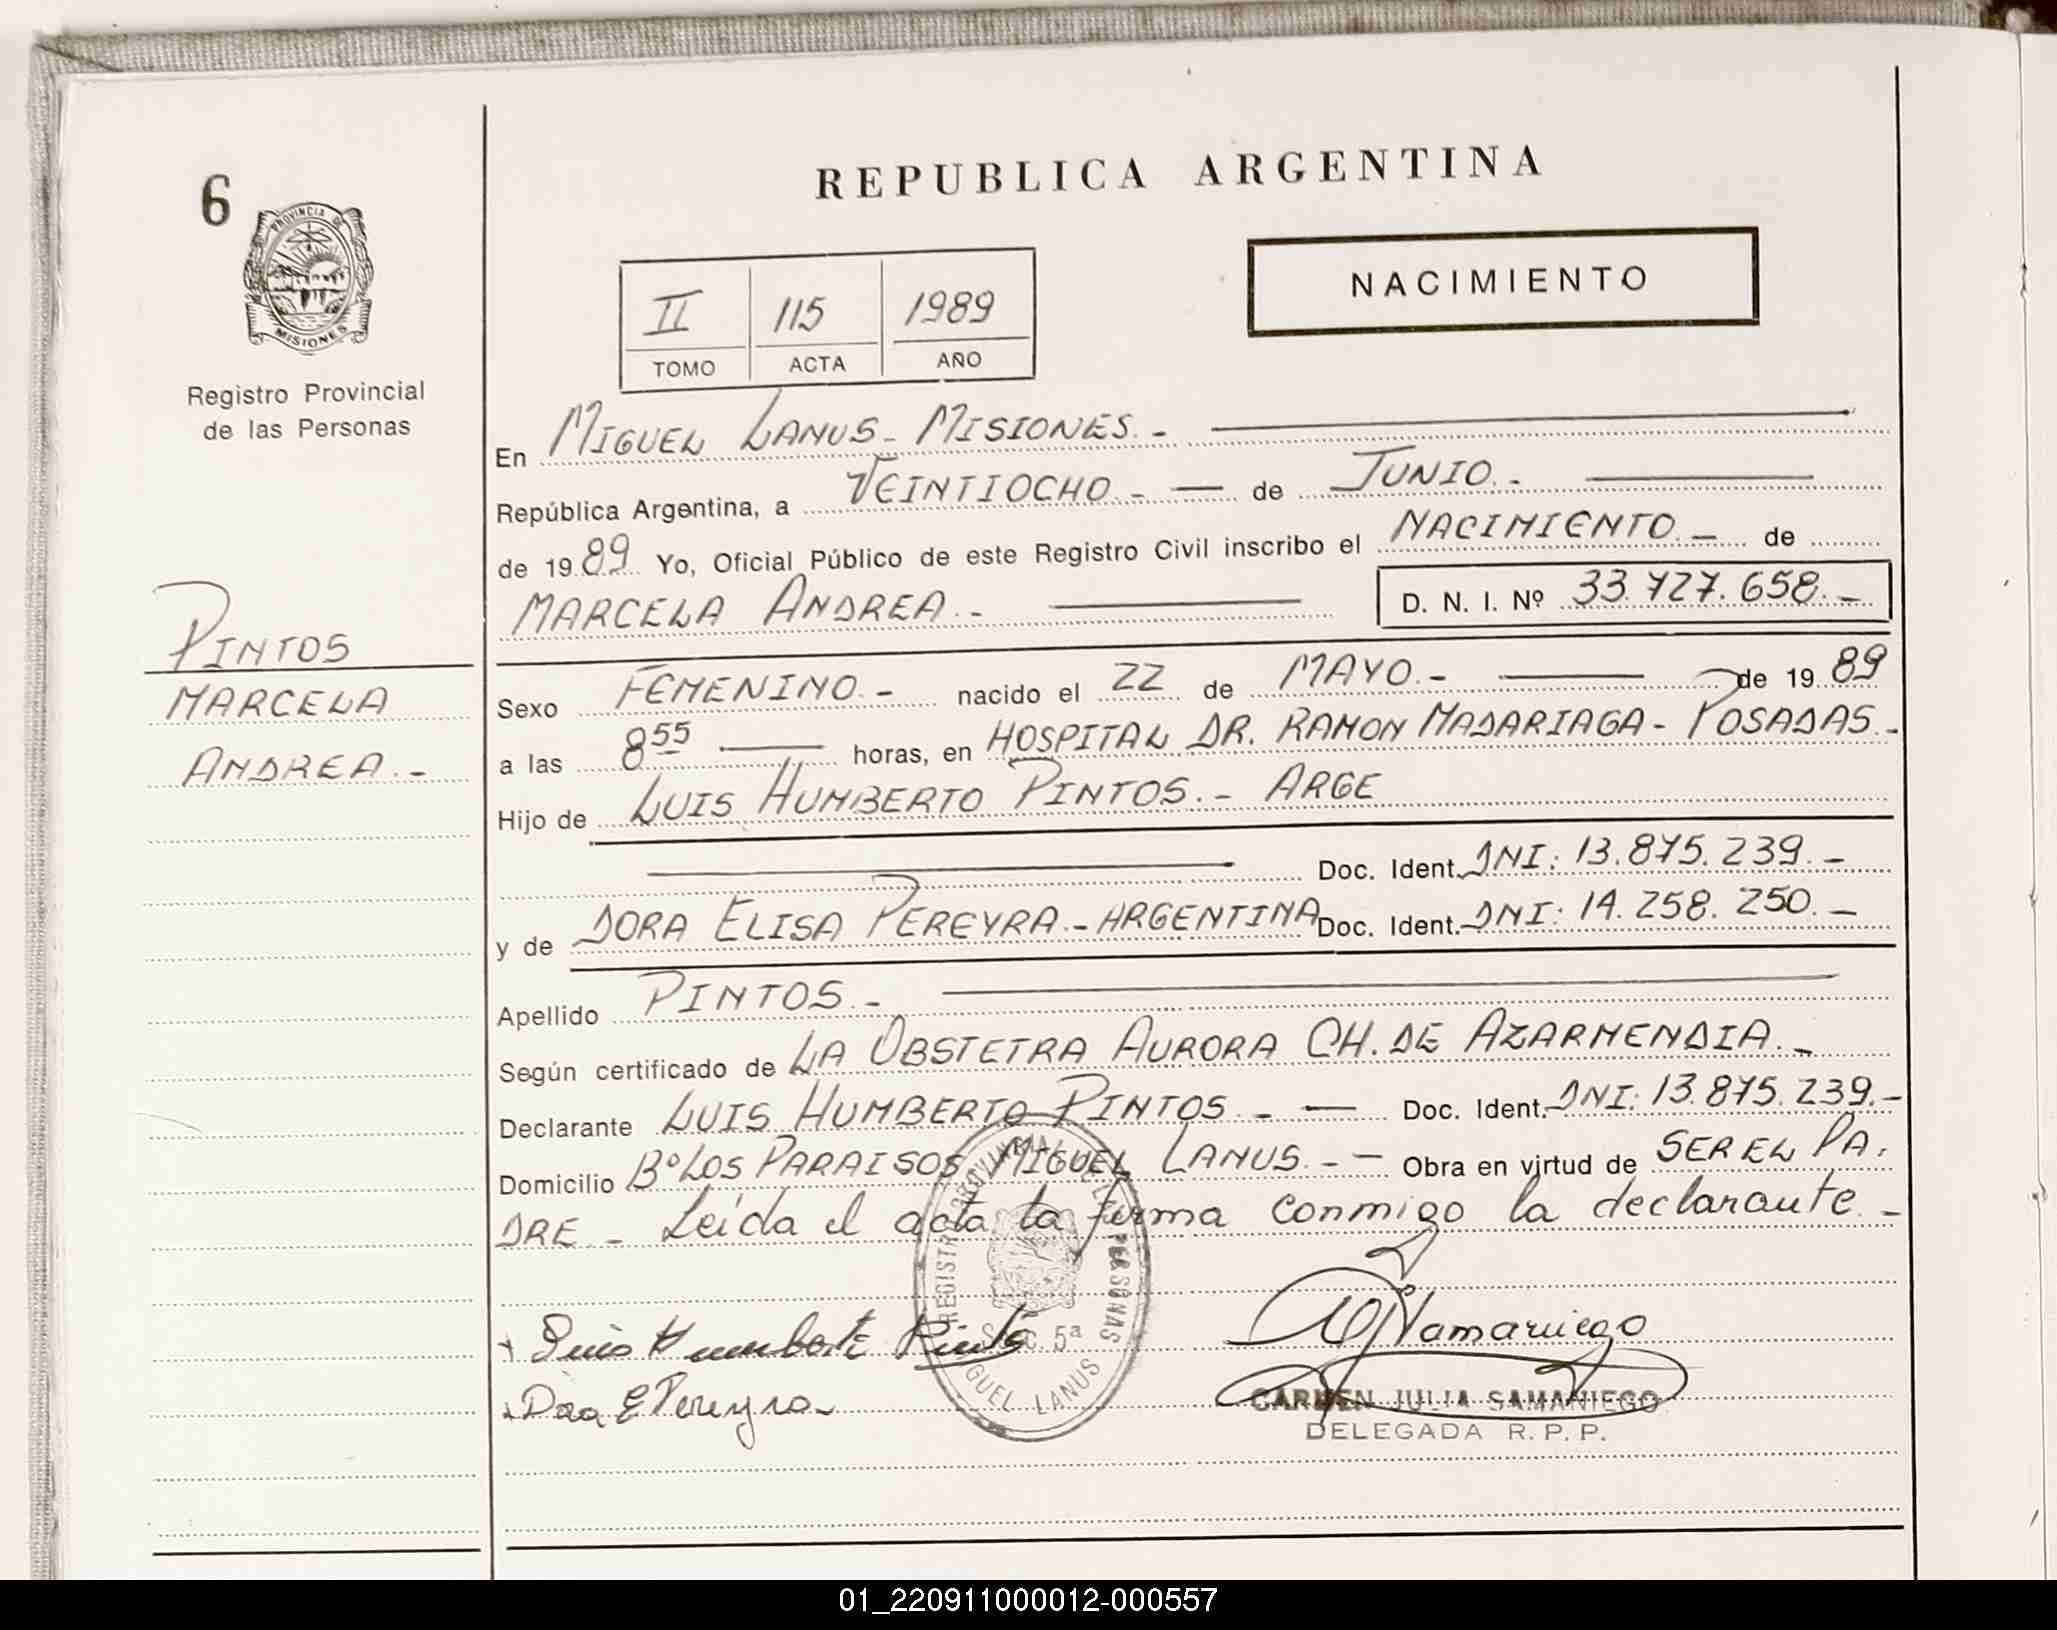 REPUBLICA ARGENTINA
6
PROVINCIA DE
MISIONES
Registro Provincial
de las Personas
II 115 1989
TOMO ACTA AÑO
NACIMIENTO
En MIGUEL LANUS - MISIONES. -
República Argentina, a VEINTIOCHO. - — de JUNIO. -
de 1989 Yo, Oficial Público de este Registro Civil inscribo el NACIMIENTO. — de
MARCELA ANDREA. - D. N. I. Nº 33.727.658. -
PINTOS
MARCELA
ANDREA. -
Sexo FEMENINO. - nacido el 22 de MAYO. - de 1989
a las 8 55 horas, en HOSPITAL DR. RAMON MADARIAGA - POSADAS. -
Hijo de LUIS HUMBERTO PINTOS. - ARGE
Doc. Ident. DNI: 13.875.239. -
y de DORA ELISA PEREYRA. - ARGENTINA Doc. Ident. DNI: 14.258.250. -
Apellido PINTOS. -
Según certificado de LA OBSTETRA AURORA CH. DE AZARMENDIA. -
Declarante LUIS HUMBERTO PINTOS. - — Doc. Ident. DNI: 13.875.239. -
Domicilio Bº LOS PARAISOS MIGUEL LANUS. - — Obra en virtud de SER EL PA.
DRE. - Leída el acta la firma conmigo la declarante. -
REGISTRO PROVINCIAL DE LAS PERSONAS
SECC. 5ª
MIGUEL LANUS
Luis Humberto Pintos
Dora E Pereyra
CJSamaniego
CARMEN JULIA SAMANIEGO
DELEGADA R. P. P.
01_220911000012-000557